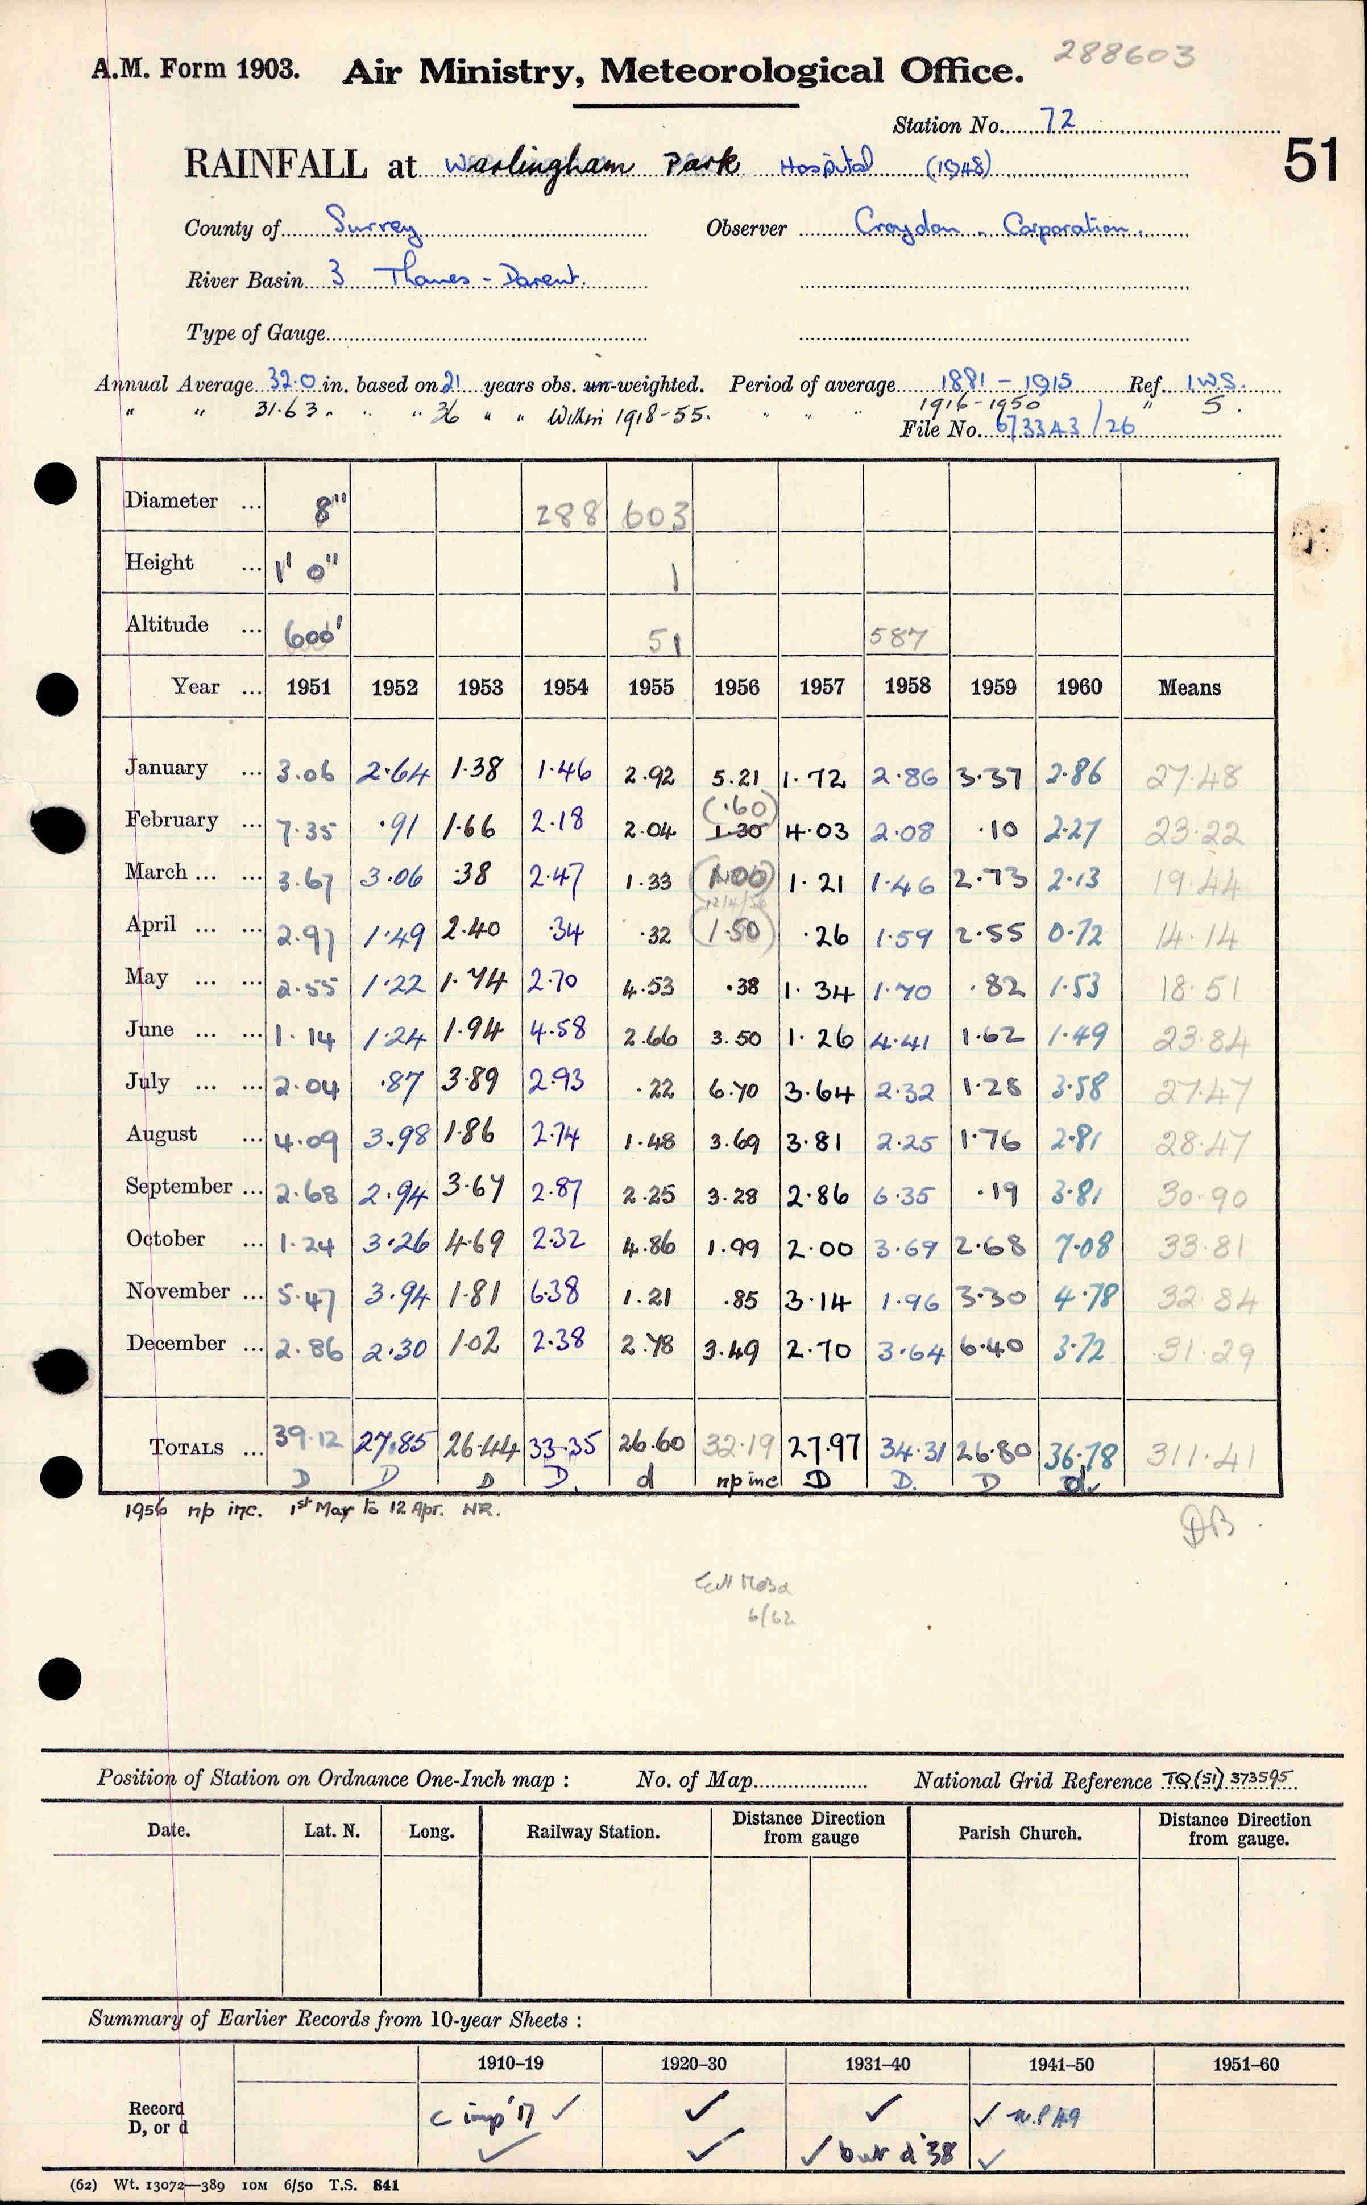 288603
A.M. Form 1903. Air Ministry, Meteorological Office.
Station No. 72
RAINFALL at Warlingham Park Hospital (1948)
51
County of Surrey Observer Croydon Corporation.
River Basin 3 Thames - Darent.
Type of Gauge
Annual Average 32.0 in. based on 21 years obs. un-weighted. Period of average 1881 - 1915 Ref. I.W.S.
" " 31.63 " " " 36 " " Within 1918-55. " " " 1916-1950 " S.
File No. 673343/26
Diameter ... 8" 288 603
Height ... 1' 0" 1
Altitude ... 600' 51 587
Year ... 1951 1952 1953 1954 1955 1956 1957 1958 1959 1960 Means
January ... 3.06 2.64 1.38 1.46 2.92 5.21 1.72 2.86 3.37 2.86 27.48
(.60)
February ... 7.35 .91 1.66 2.18 2.04 1.30 4.03 2.08 .10 2.27 23.22
March ... ... 3.67 3.06 .38 2.47 1.33 (1.00) 1.21 1.46 2.73 2.13 19.44
April ... ... 2.97 1.49 2.40 .34 .32 (1.50) .26 1.59 2.55 0.72 14.14
May ... ... 2.55 1.22 1.74 2.70 4.53 .38 1.34 1.70 .82 1.53 18.51
June ... ... 1.14 1.24 1.94 4.58 2.66 3.50 1.26 4.41 1.62 1.49 23.84
July ... ... 2.04 .87 3.89 2.93 .22 6.70 3.64 2.32 1.28 3.58 27.47
August ... 4.09 3.98 1.86 2.74 1.48 3.69 3.81 2.25 1.76 2.81 28.47
September ... 2.68 2.94 3.67 2.87 2.25 3.28 2.86 6.35 .19 3.81 30.90
October ... 1.24 3.26 4.69 2.32 4.86 1.99 2.00 3.69 2.68 7.08 33.81
November ... 5.47 3.94 1.81 6.38 1.21 .85 3.14 1.96 3.30 4.78 32.84
December ... 2.86 2.30 1.02 2.38 2.78 3.49 2.70 3.64 6.40 3.72 31.29
TOTALS ... 39.12 27.85 26.44 33.35 26.60 32.19 27.97 34.31 26.80 36.78 311.41
D D D D. d np inc D D. D d
1956 np inc. 1st Mar to 12 Apr. NR.
DB
6/62
Position of Station on Ordnance One-Inch map : No. of Map National Grid Reference TQ(51) 373595
Date. Lat. N. Long. Railway Station. Distance Direction from gauge Parish Church. Distance Direction from gauge.
Summary of Earlier Records from 10-year Sheets :
1910-19 1920-30 1931-40 1941-50 1951-60
Record D, or d c imp '17 ✓ ✓ ✓ ✓ n.p 49
✓ ✓ ✓ but d '38 ✓
(62) Wt. 13072—389 10M 6/50 T.S. 841